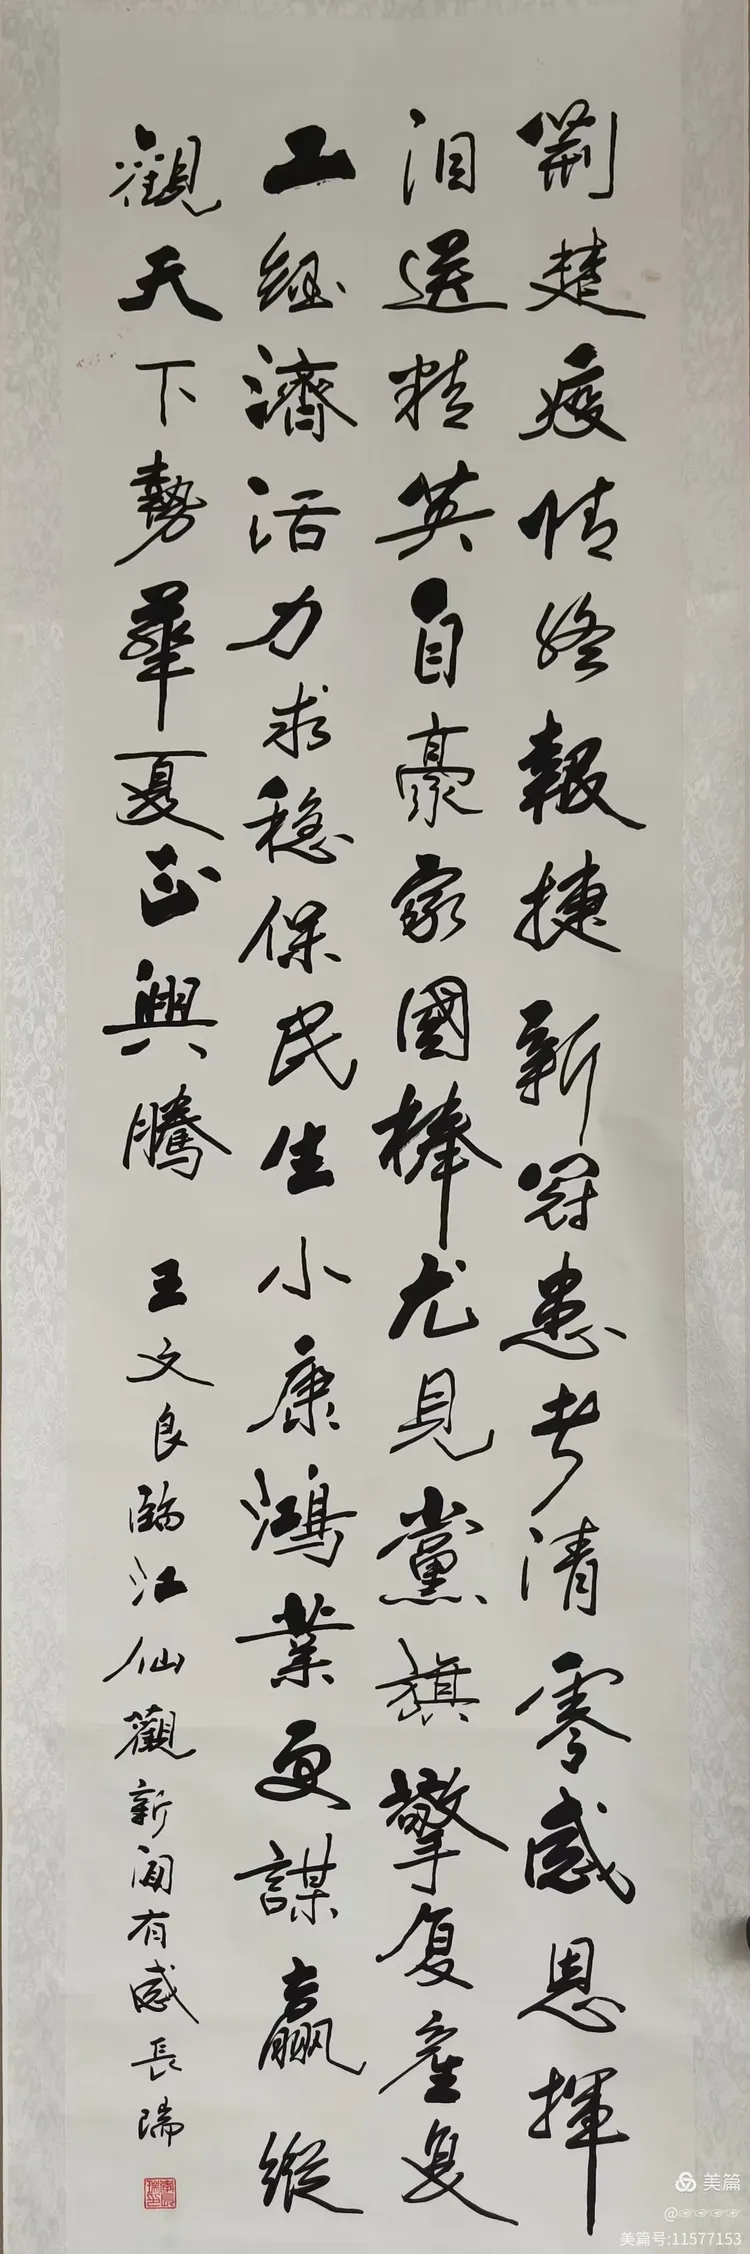 荆楚疫情终报捷新冠患者清零感恩挥
泪送精英自豪家国棒尤见黨旗擎复產复
工经濟活力求稳保民生小康鸿業更謀赢縱
觀天下勢華夏正興腾
王文良臨江仙觀新闻有感長瑞
美篇
美篇号:11577153